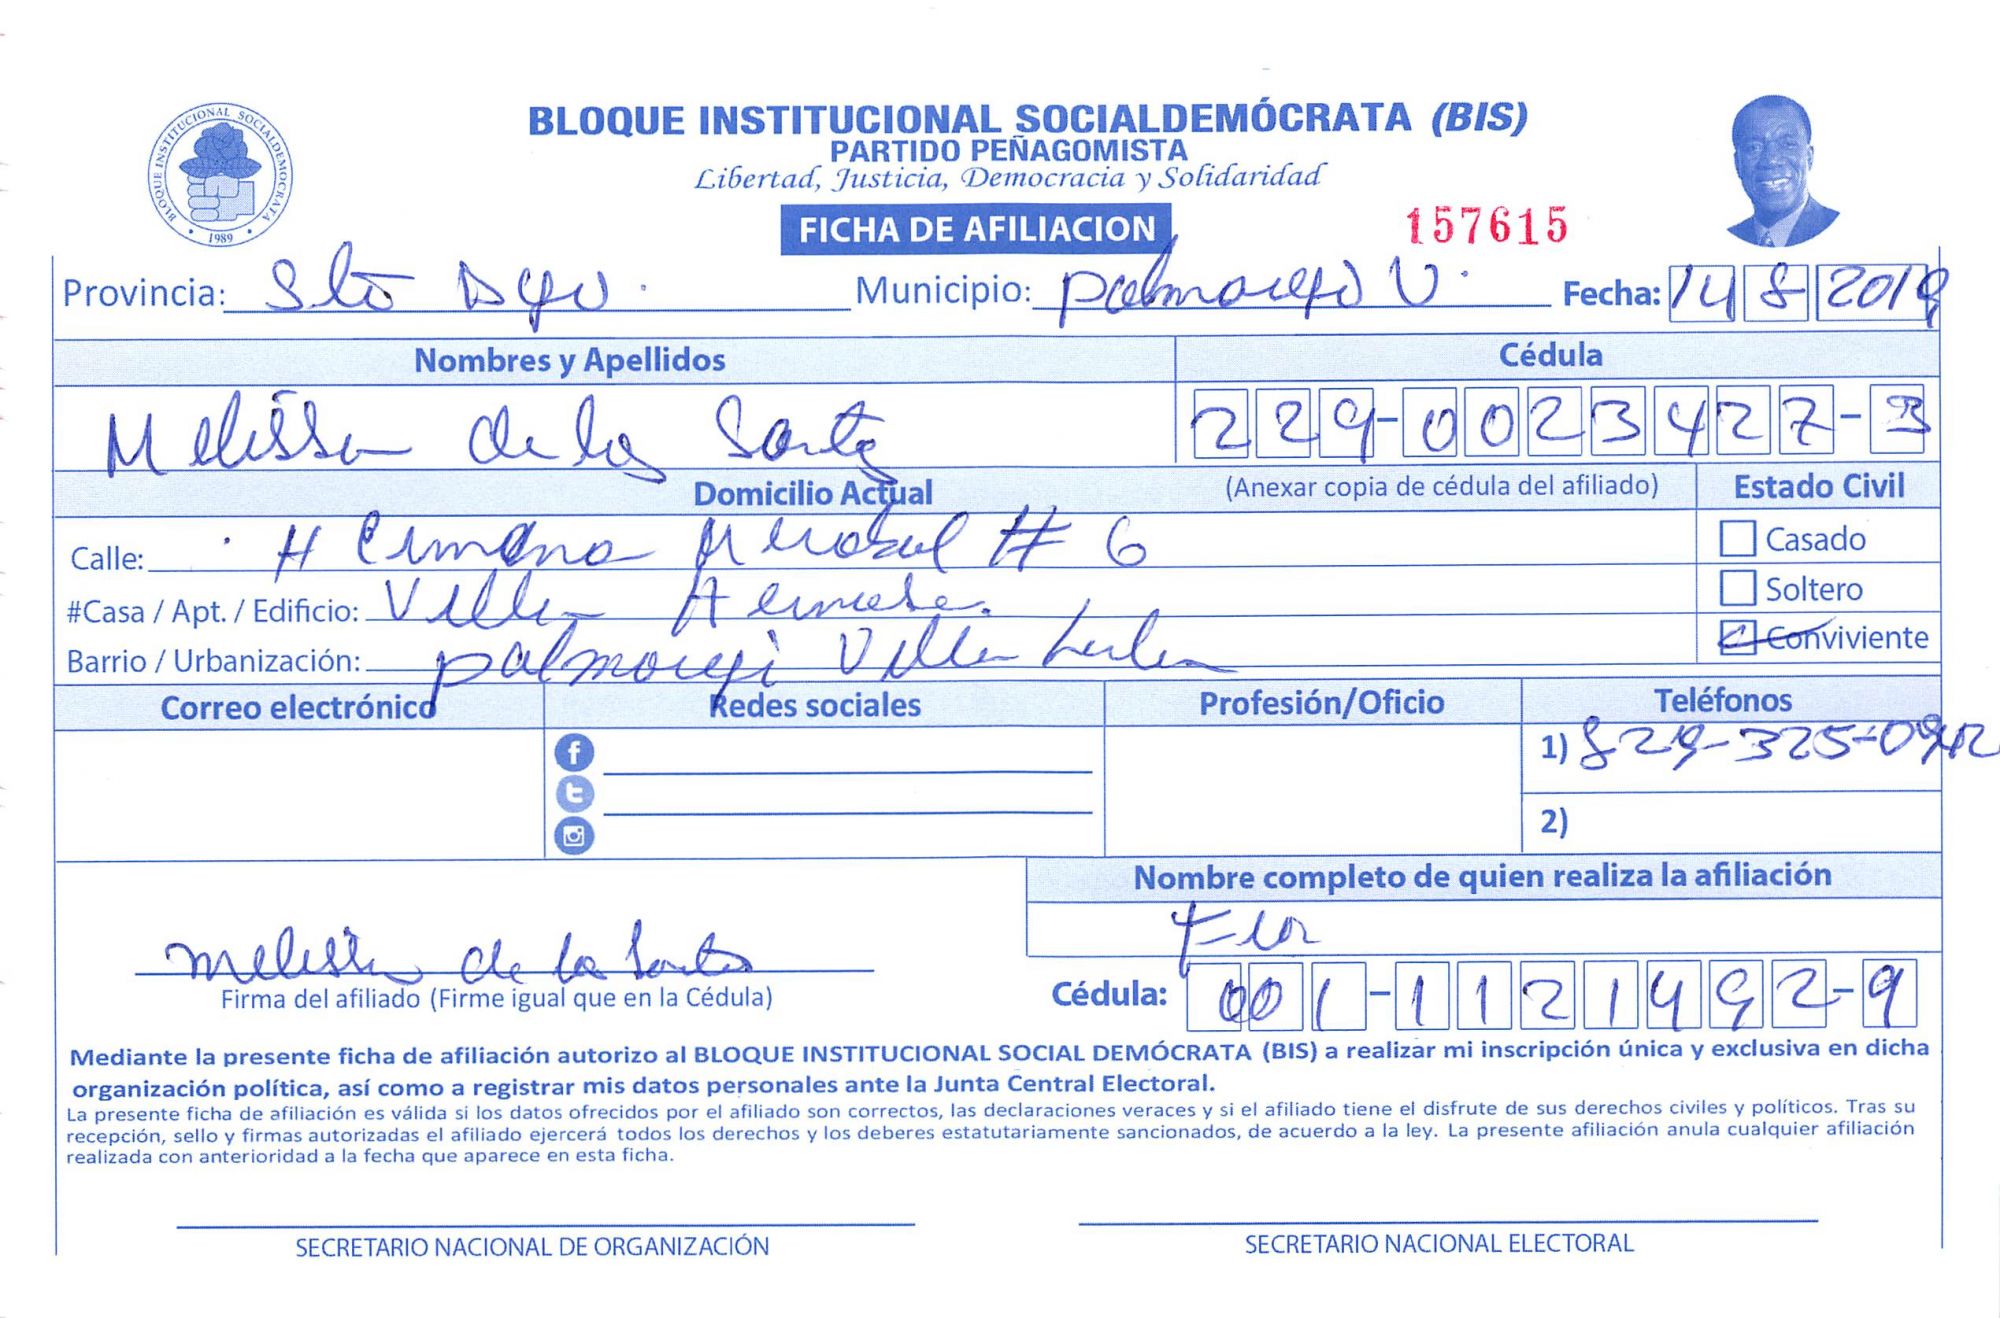 BLOQUE INSTITUCIONAL SOCIALDEMÓCRATA (BIS)
PARTIDO PEÑAGOMISTA
Libertad, Justicia, Democracia y Solidaridad
BLOQUE INSTITUCIONAL SOCIALDEMOCRATA
1989
FICHA DE AFILIACION
157615
Provincia: Sto Dgo. Municipio: palmarejo V. Fecha: 14 8 2019
Nombres y Apellidos Cédula
Melissa de los Santos 229-0023427-3
Domicilio Actual (Anexar copia de cédula del afiliado) Estado Civil
Calle: H # 6 Casado
#Casa / Apt. / Edificio: Villa Soltero
Barrio / Urbanización: palmareji Villa Conviviente
Correo electrónico Redes sociales Profesión/Oficio Teléfonos
1) 829-325-0942
2)
Nombre completo de quien realiza la afiliación
Flor
melissa de los Santos
Firma del afiliado (Firme igual que en la Cédula) Cédula: 001-1121492-9
Mediante la presente ficha de afiliación autorizo al BLOQUE INSTITUCIONAL SOCIAL DEMÓCRATA (BIS) a realizar mi inscripción única y exclusiva en dicha
organización política, así como a registrar mis datos personales ante la Junta Central Electoral.
La presente ficha de afiliación es válida si los datos ofrecidos por el afiliado son correctos, las declaraciones veraces y si el afiliado tiene el disfrute de sus derechos civiles y políticos. Tras su
recepción, sello y firmas autorizadas el afiliado ejercerá todos los derechos y los deberes estatutariamente sancionados, de acuerdo a la ley. La presente afiliación anula cualquier afiliación
realizada con anterioridad a la fecha que aparece en esta ficha.
SECRETARIO NACIONAL DE ORGANIZACIÓN SECRETARIO NACIONAL ELECTORAL